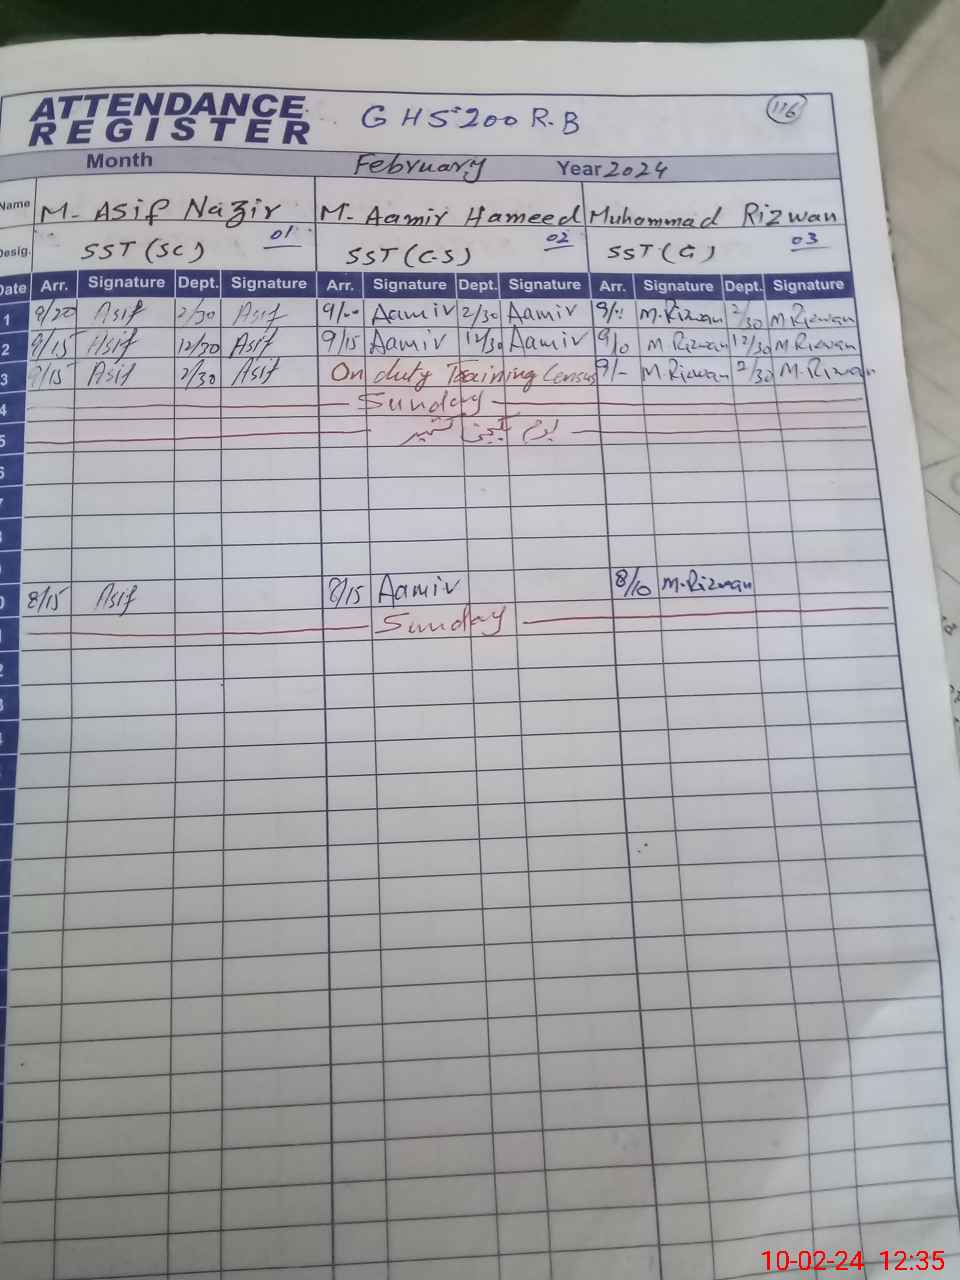 ATTENDANCE
REGISTER
GHS 200 R.B
116
Month February Year 2024
Name M. Asif Nazir M. Aamir Hameed Muhammad Rizwan
Desig. SST (SC) 01 SST (C-S) 02 SST (G) 03
Date Arr. Signature Dept. Signature Arr. Signature Dept. Signature Arr. Signature Dept. Signature
1 9/20 Asif 2/30 Asif 9/-- Aamir 2/30 Aamir 9/-- M.Rizwan 2/30 M.Rizwan
2 9/15 Asif 12/30 Asif 9/15 Aamir 12/30 Aamir 9/0 M Rizwan 12/30 M.Rizwan
3 9/15 Asif 2/30 Asif On duty Training Census 9/- M.Rizwan 2/30 M.Rizwan
4 Sunday
5 یوم یکجہتی کشمیر
8/15 Asif 8/15 Aamir 8/10 M.Rizwan
Sunday
10-02-24 12:35